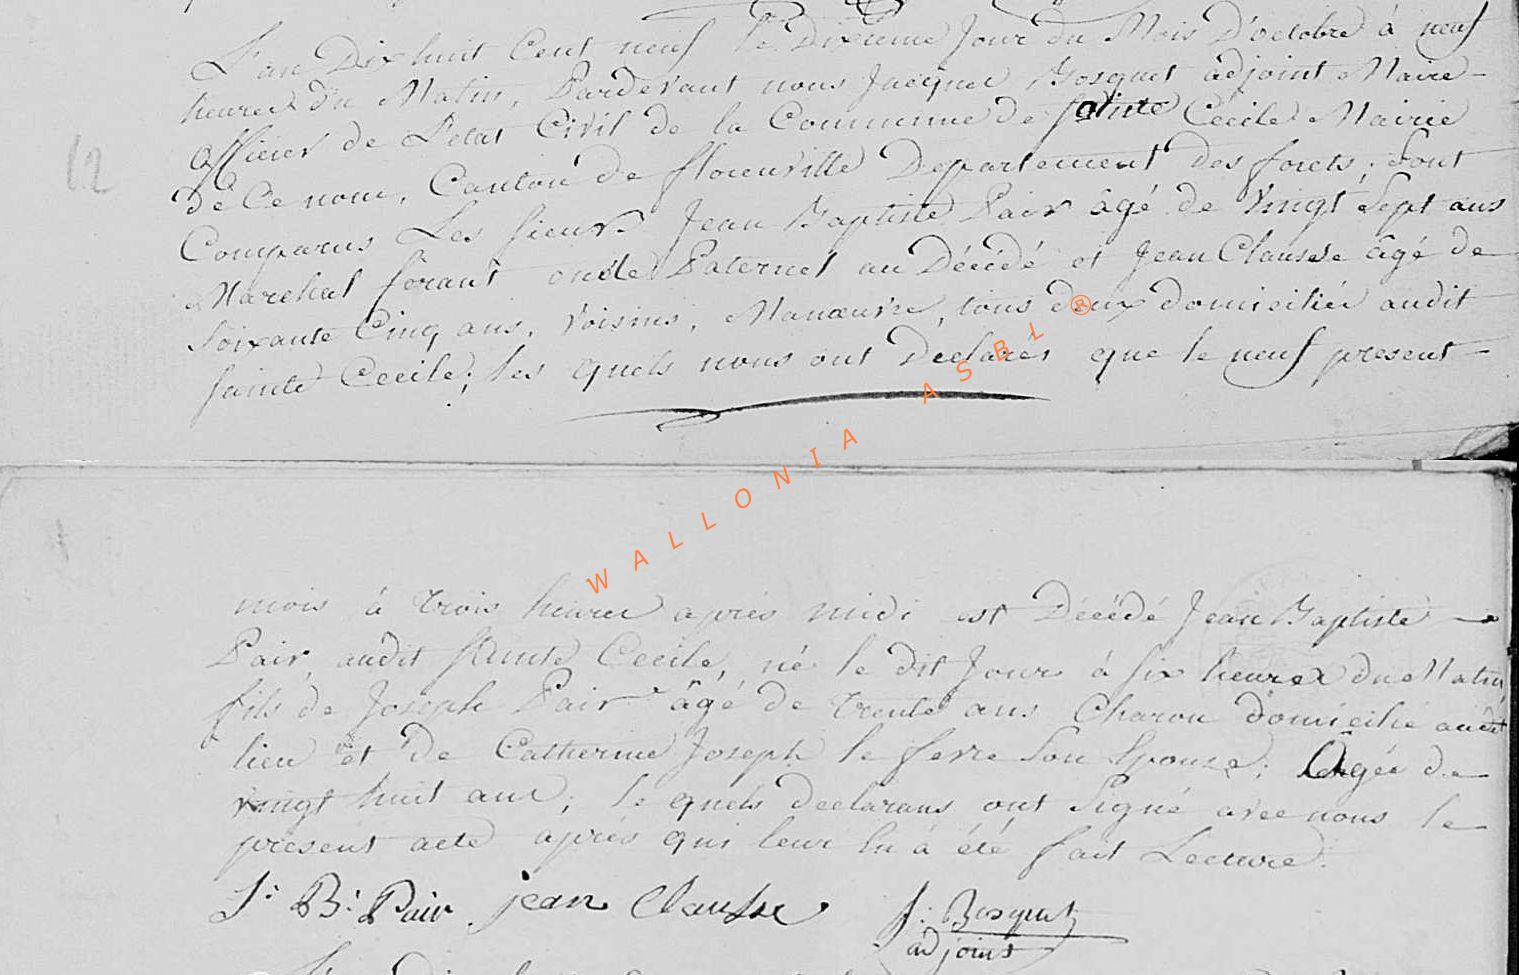 L'an Dix huit Cent neuf le Dixieme Jour du Mois D'octobre à neuf
heures du Matin, Pardevant nous Jacque Bosquet adjoint Maire
officier de L'etat Civil de la Commune de sainte Cécile Mairie
12
de Ce nom, Canton de florenville Departement des forets. Sont
Comparus Les sieurs Jean Baptiste Pair âgé de Vingt Sept ans
Marchal ferant oncle Paternel au Décédé et Jean Clausse âgé de
Soixante Cinq ans, Voisins, Manœuvre, tous deux domiciliés audit
sainte Cecile; les quels nous ont Declarés que le neuf present
WALLONIA ASBL ®
mois à trois heures après midi est Décédé Jean Baptiste
Pair, audit sainte Cecile, né le dit Jour à six heures du Matin
fils de Joseph Pair âgé de trente ans Charon domicilié audit
lieu et de Catherine Joseph le fevre Son Epouse; Agée de
vingt huit ans; le quels declarans ont Signé avec nous le
présent acte après qui leur lu à été fait Lecture.
J: B: Pair jean Clausse J: Bosquet
adjoint